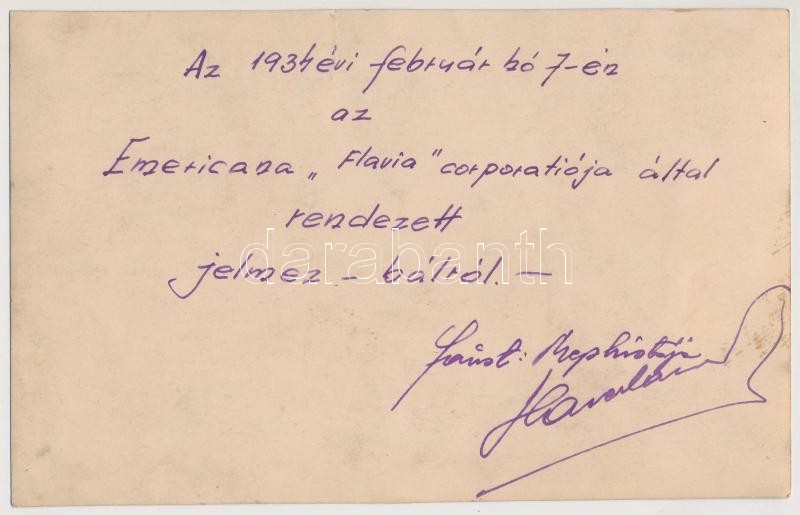 Az 1934 évi február hó 7-én
az
Emericana „Flavia” corporatiója által
rendezett
jelmez - bálról. —
darabanth
Faust: Mephistója